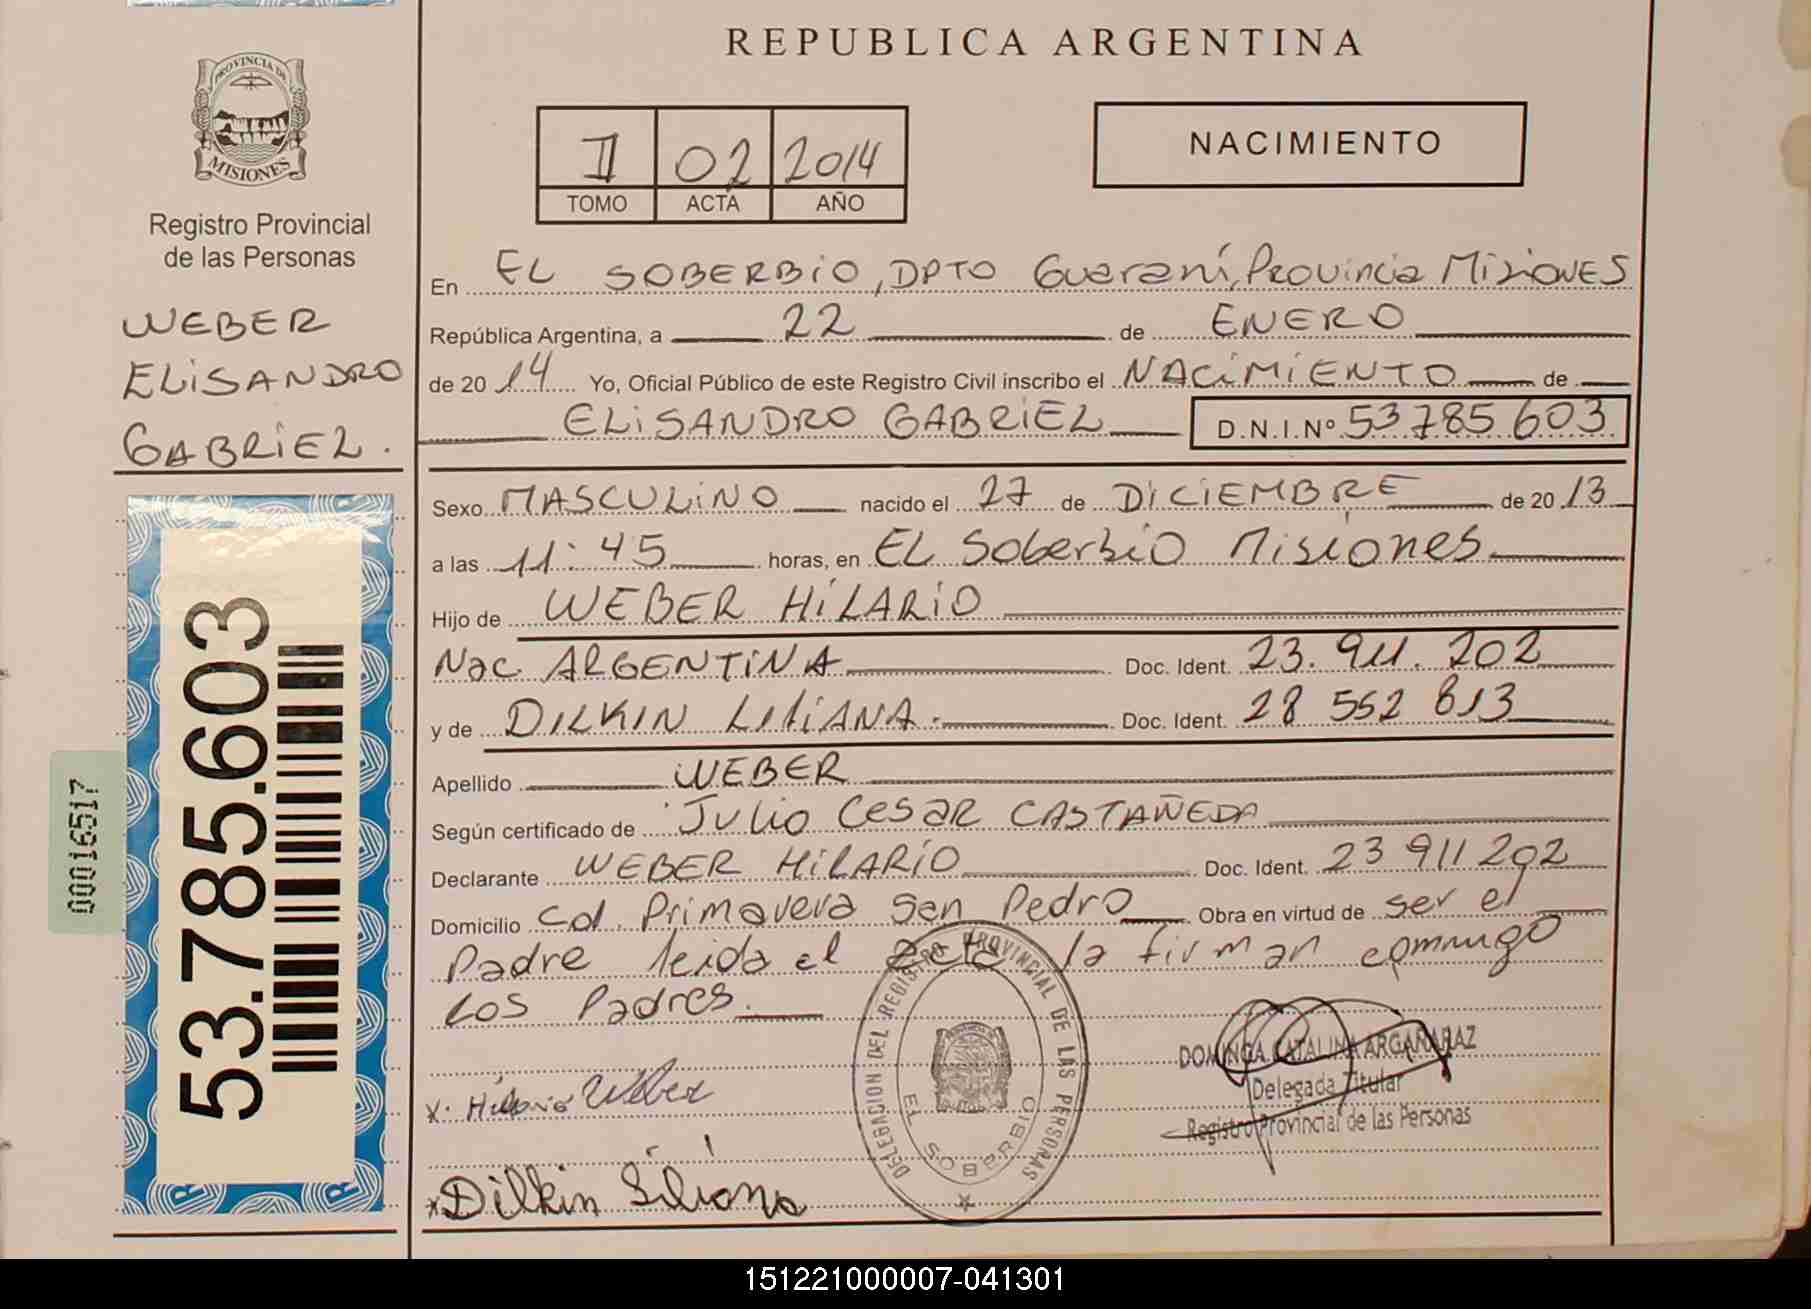 REPUBLICA ARGENTINA
PROVINCIA DE
MISIONES
Registro Provincial
de las Personas
II 02 2014
TOMO ACTA AÑO
NACIMIENTO
WEBER
ELISANDRO
GABRIEL.
53.785.603
00016517
En EL SOBERBIO, DPTO Guaraní, Provincia MISIONES
República Argentina, a 22 de ENERO
de 20 14 Yo, Oficial Público de este Registro Civil inscribo el NACIMIENTO de
ELISANDRO GABRIEL D.N.I.Nº 53785603
Sexo MASCULINO nacido el 27 de DICIEMBRE de 20 13
a las 11:45 horas, en EL Soberbio Misiones
Hijo de WEBER HILARIO
Nac ARGENTINA Doc. Ident. 23.911.202
y de DILKIN LILIANA. Doc. Ident. 28 552 813
Apellido WEBER
Según certificado de Julio Cesar CASTAÑEDA
Declarante WEBER HILARIO Doc. Ident. 23 911 202
Domicilio Col. Primavera San Pedro Obra en virtud de ser el
Padre leida el acta la firman conmigo
Los Padres.
X. Hilario Weber
DELEGACION DEL REGISTRO PROVINCIAL DE LAS PERSONAS
EL SOBERBIO
DOMINGA CATALINA ARGAÑARAZ
Delegada Titular
Registro Provincial de las Personas
x Dilkin Liliana
151221000007-041301